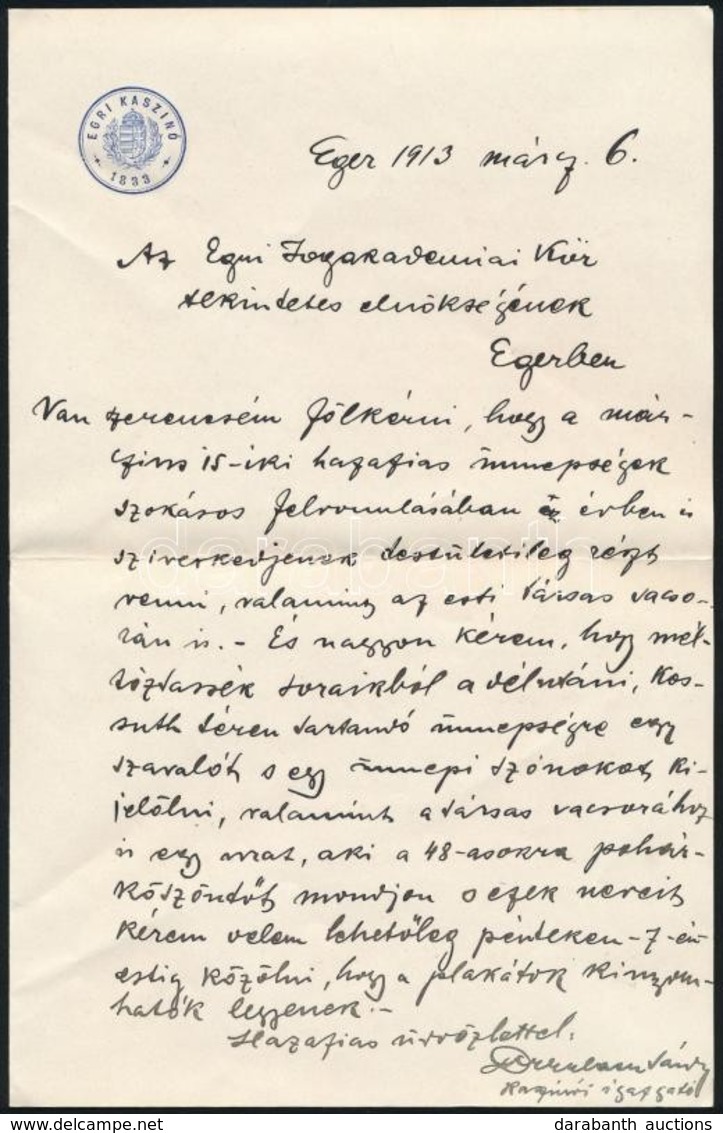 EGRI KASZINÓ
1833
Eger 1913 márcz. 6.
Az Egri Jogakademiai Kör
tekintetes elnökségének
Egerben
Van szerencsém fölkérni, hogy a már-
czius 15-iki hazafias ünnepségek
szokásos felvonulásában ez évben is
sziveskedjenek testületileg részt
venni, valamint az esti társas vacso-
rán is. - És nagyon kérem, hogy mél-
tóztassék soraikból a délutáni, Kos-
suth téren tartandó ünnepségre egy
szavalót s egy ünnepi szónokot ki-
jelölni, valamint a társas vacsorához
is egy urat, aki a 48-asokra pohár-
köszöntőt mondjon s ezek neveit
kérem velem lehetőleg pénteken - 7-én
estig közölni, hogy a plakátok kinyom-
hatók legyenek. -
Hazafias üdvözlettel:
Kaszinói igazgató
darabanth
darabanth auctions